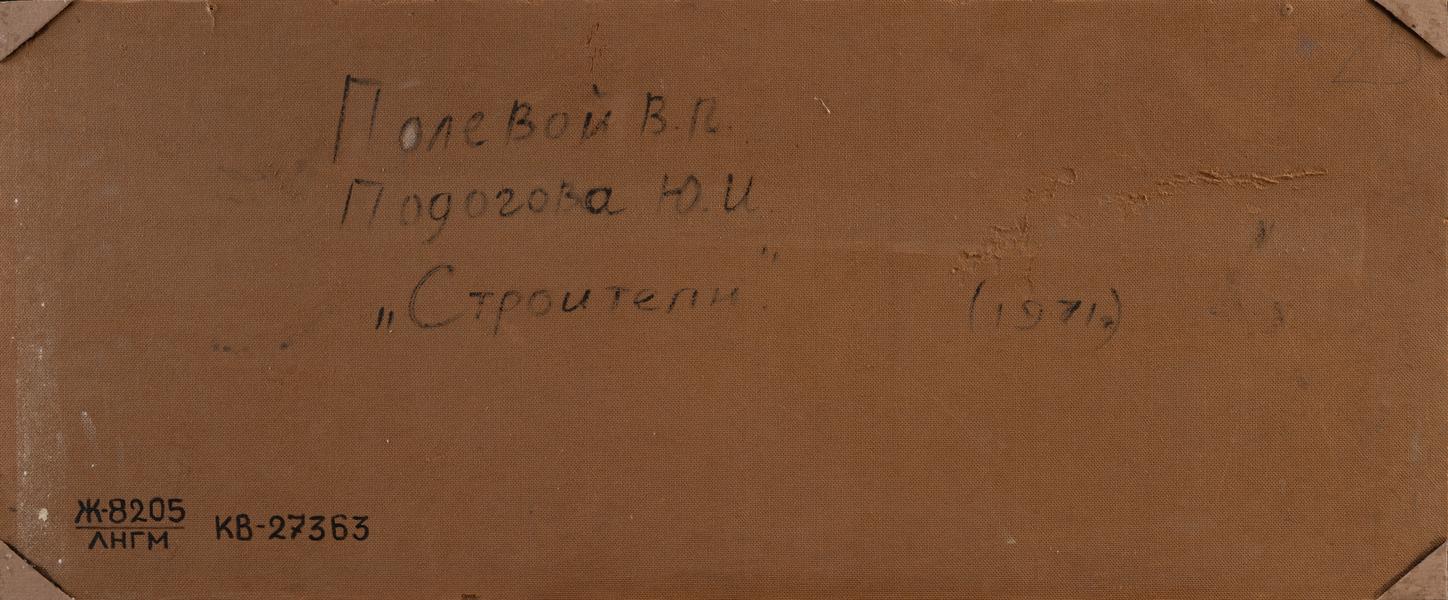 Полевой В.П.
Подогова Ю.И.
„Строители" (1971г)
Ж-8205 КВ-27363
ЛНГМ